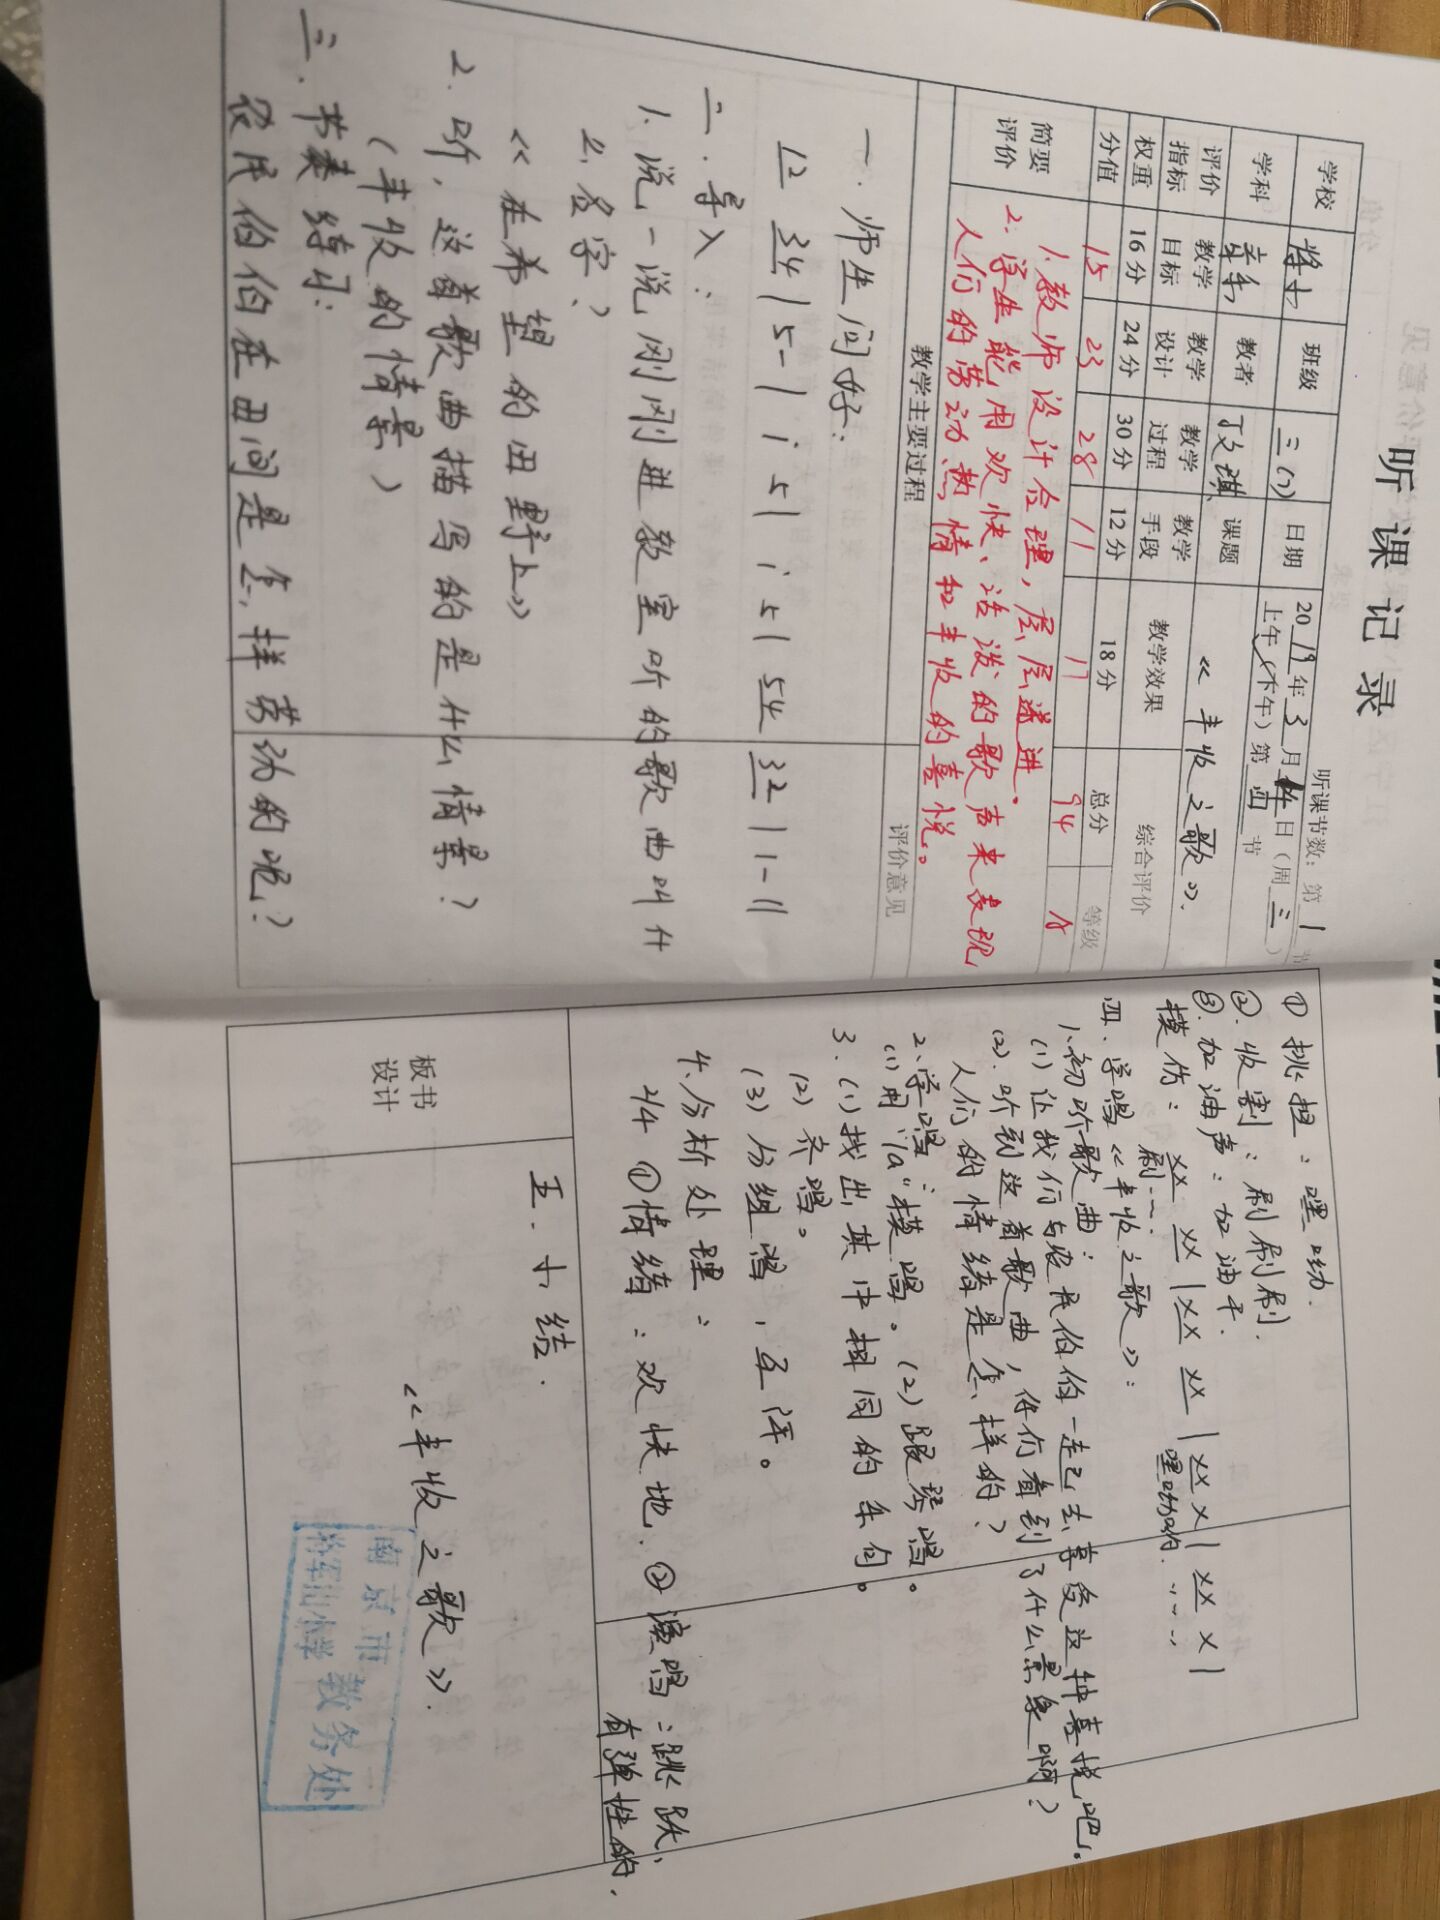 听课记录
听课节数：第 1 节
学校 将小 班级 三(7) 日期 2019年3月14日（周三）
上午（下午）第 四 节
学科 音乐 教者 丁文琪 课题 《丰收之歌》.
评价指标 教学目标 教学设计 教学过程 教学手段 教学效果 综合评价
权重 16分 24分 30分 12分 18分 总分 等级
分值 15 23 28 11 17 94 A
简要评价
1.教师设计合理，层层递进.
2.学生能用欢快、活泼的歌声来表现
人们的劳动热情和丰收的喜悦。
教学主要过程 评价意见
一.师生问好：
12 34 | 5 - | i 5 | i 5 | 54 32 | 1 - ||
二.导入：
1.说一说刚刚进教室听的歌曲叫什
么名字？
《在希望的田野上》
2.听，这首歌曲描写的是什么情景？
（丰收的情景）
三.节奏练习：
农民伯伯在田间是怎样劳动的呢？
① 挑担：嘿呦.
②.收割：刷刷刷.
③.加油声：加油干.
模仿：XX XX | XX XX | XX X | XX X |
刷…… 嘿呦呦……
四.学唱《丰收之歌》：
1.初听歌曲：
(1) 让我们与农民伯伯一起去享受这种喜悦吧。
(2).听到这首歌曲，你们看到了什么景象啊？
人们的情绪是怎样的？
2.学唱：
(1)用"la"模唱。(2)跟琴唱。
3.(1)找出其中相同的乐句。
(2)齐唱。
(3)分组唱，互评。
4.分析处理：
2/4 ①情绪：欢快地.②演唱：跳跃、
有弹性的.
五.小结.
板书设计
《丰收之歌》.
南京市
将军山小学 教务处